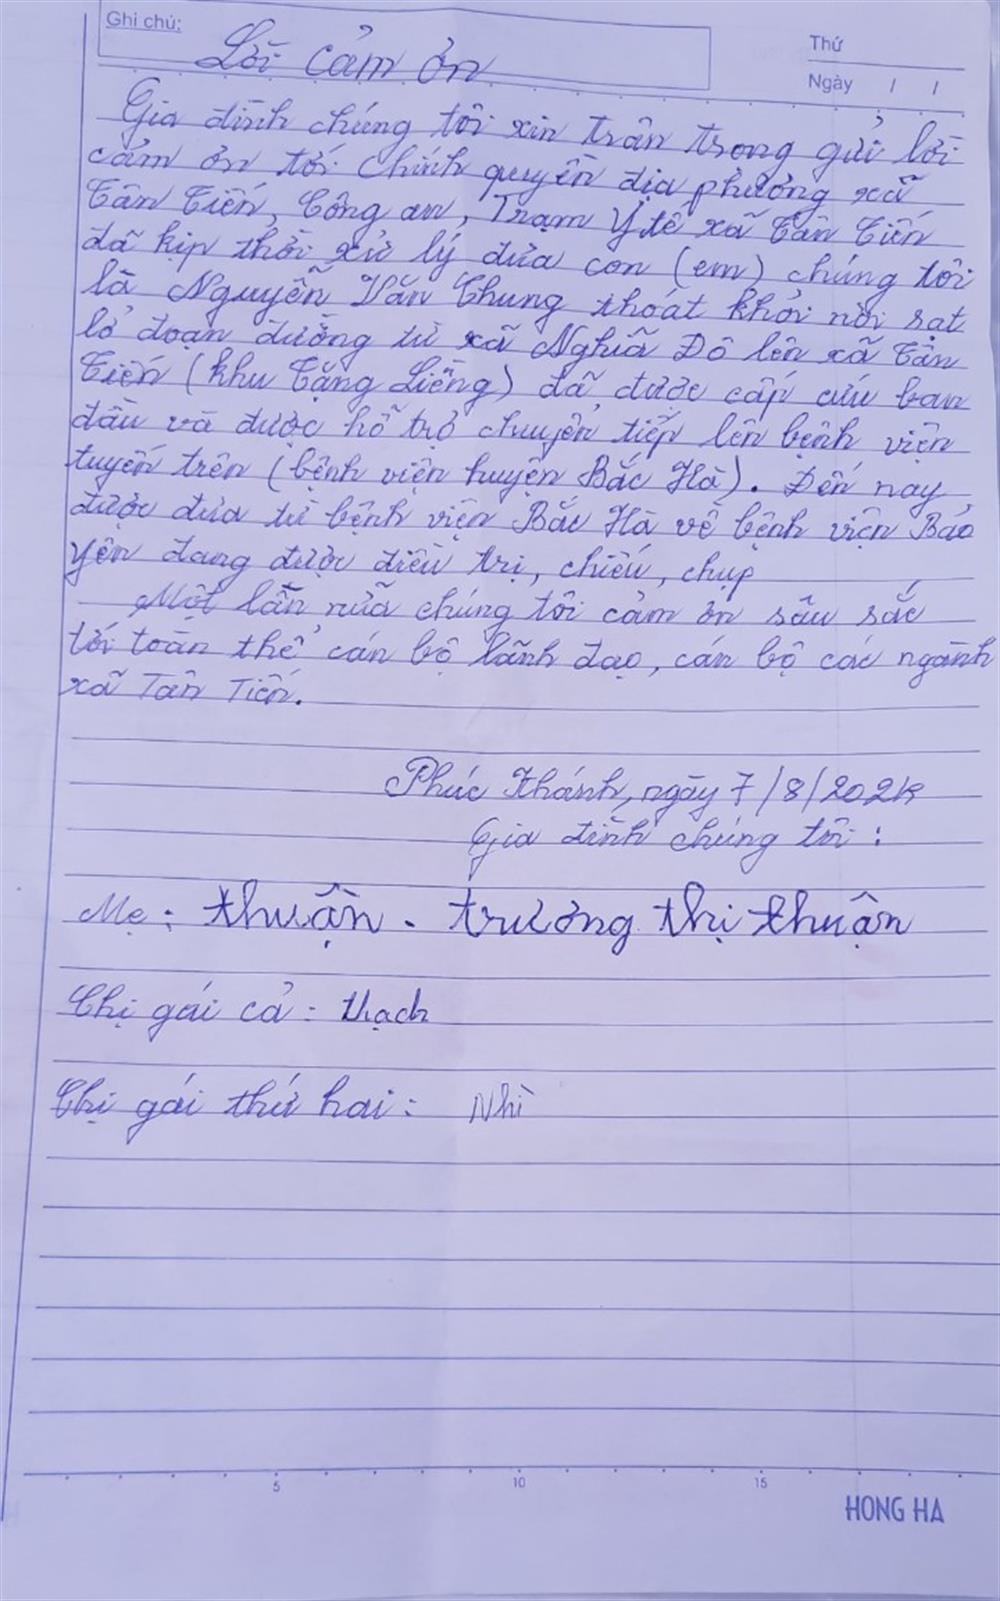 Ghi chú:
Thứ
Ngày / /
Lời cảm ơn
Gia đình chúng tôi xin trân trọng gửi lời
cảm ơn tới chính quyền địa phương xã
Tân Tiến, Công an, Trạm Y tế xã Tân Tiến
đã kịp thời xử lý đưa con (em) chúng tôi
là Nguyễn Văn Chung thoát khỏi nơi sạt
lở đoạn đường từ xã Nghĩa Đô lên xã Tân
Tiến (khu Tặng Liềng) đã được cấp cứu ban
đầu và được hỗ trợ chuyển tiếp lên bệnh viện
tuyến trên (bệnh viện huyện Bắc Hà). Đến nay
được đưa từ bệnh viện Bắc Hà về bệnh viện Bảo
Yên đang được điều trị, chiếu, chụp
Một lần nữa chúng tôi cảm ơn sâu sắc
tới toàn thể cán bộ lãnh đạo, cán bộ các ngành
xã Tân Tiến.
Phúc Khánh, ngày 7/8/202
Gia đình chúng tôi:
Mẹ: thuận. trương thị thuận
Chị gái cả: thạch
Chị gái thứ hai: Nhì
5 10 15
HONG HA